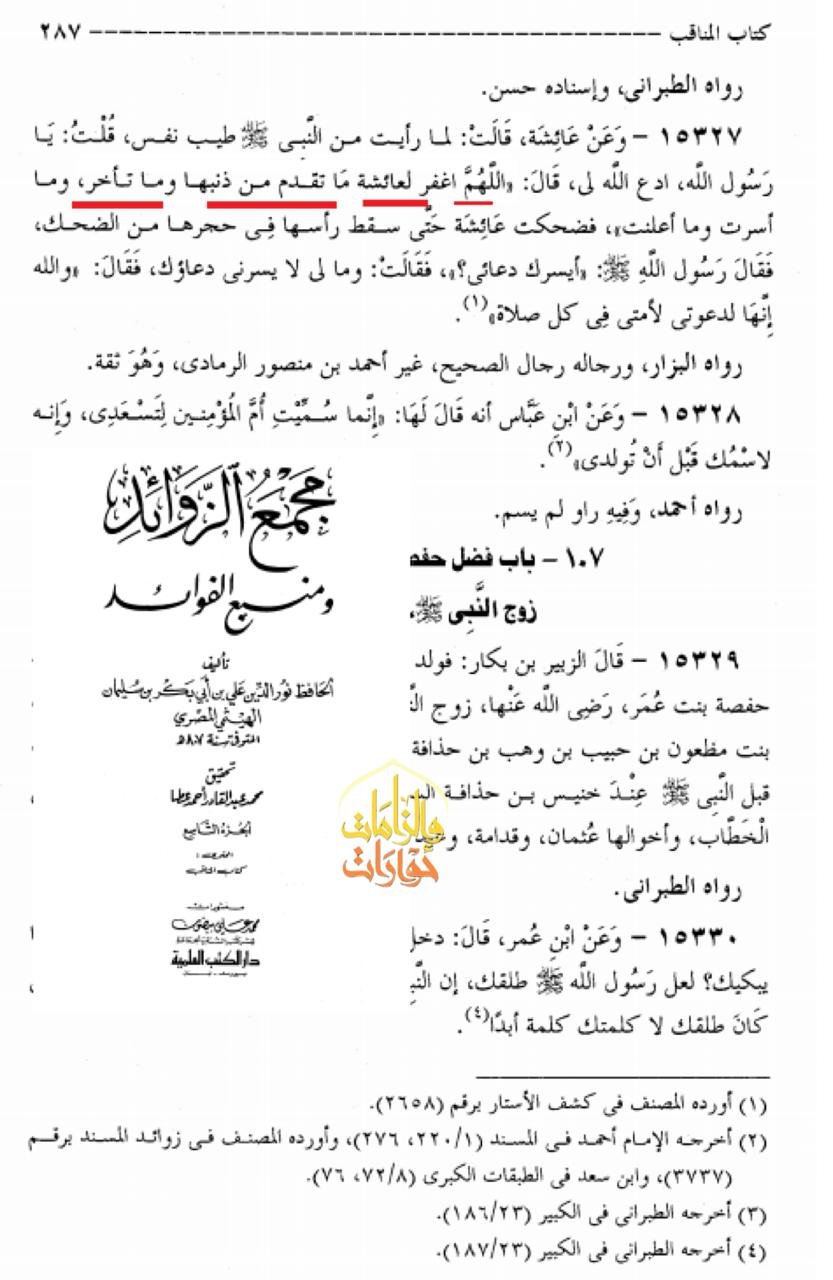 كتاب المناقب ---------- ٢٨٧
رواه الطبرانى، وإسناده حسن.
١٥٣٢٧ – وَعَنْ عَائِشَة، قَالَتْ: لما رأيت من النَّبى ﷺ طيب نفس، قُلْتُ: يَا
رَسُول الله، ادع الله لى، قَالَ: «اللَّهُمَّ اغفر لعائشة مَا تقدم من ذنبها وما تأخر، وما
أسرت وما أعلنت»، فضحكت عَائِشَة حَتَّى سقط رأسها فِى حجرها من الضحك،
فَقَالَ رَسُول اللَّهِ ﷺ: «أيسرك دعائى؟»، فَقَالَتْ: وما لى لا يسرنى دعاؤك، فَقَالَ: «والله
إنَّهَا لدعوتى لأمتى فِى كل صلاة»(١).
رواه البزار، ورجاله رجال الصحيح، غير أحمد بن منصور الرمادى، وَهُوَ ثقة.
١٥٣٢٨ – وَعَنْ ابْنِ عَبَّاس أنه قَالَ لَهَا: «إنَّما سُمِّيْتِ أُمَّ الْمُؤْمِنين لِتَسْعَدِى، وَإنه
لاسْمُك قَبْل أَنْ تُولدى»(٢).
رواه أحمد، وَفِيهِ راو لم يسم.
١٠٧ – باب فضل حفص
زوج النَّبِى ﷺ،
١٥٣٢٩ – قَالَ الزبير بن بكار: فولد
حفصة بنت عُمَر، رَضِى الله عَنْها، زوج
بنت مظعون بن حبيب بن وهب بن حذافة
قبل النَّبِى ﷺ عِنْدَ خنيس بن حذافة
الْخَطَّاب، وأخوالها عُثمان، وقدامة،
رواه الطبرانى.
١٥٣٣٠ – وَعَنْ ابْنِ عُمر، قَالَ: دخل
يبكيك؟ لعل رَسُول الله ﷺ طلقك، إن
كَانَ طلقك لا كلمتك كلمة أبدًا(٤).
مجمع الزوائد
ومنبع الفوائد
تأليف
الحافظ نور الدين علي بن أبي بكر بن سليمان
الهيثمي المصري
المتوفى سنة ٨٠٧ هـ
تحقيق
محمد عبد القادر أحمد عطا
الجزء التاسع
المحتوى:
كتاب المناقب
منشورات
محمد علي بيضون
دار الكتب العلمية
والزامات
حوارات
(١) أورده المصنف فى كشف الأستار برقم (٢٦٥٨).
(٢) أخرجه الإمام أحمد فى المسند (٢٢٠/١، ٢٧٦)، وأورده المصنف فى زوائد المسند برقم
(٣٧٣٧)، وابن سعد فى الطبقات الكبرى (٧٢/٨، ٧٦).
(٣) أخرجه الطبرانى فى الكبير (١٨٦/٢٣).
(٤) أخرجه الطبرانى فى الكبير (١٨٧/٢٣).